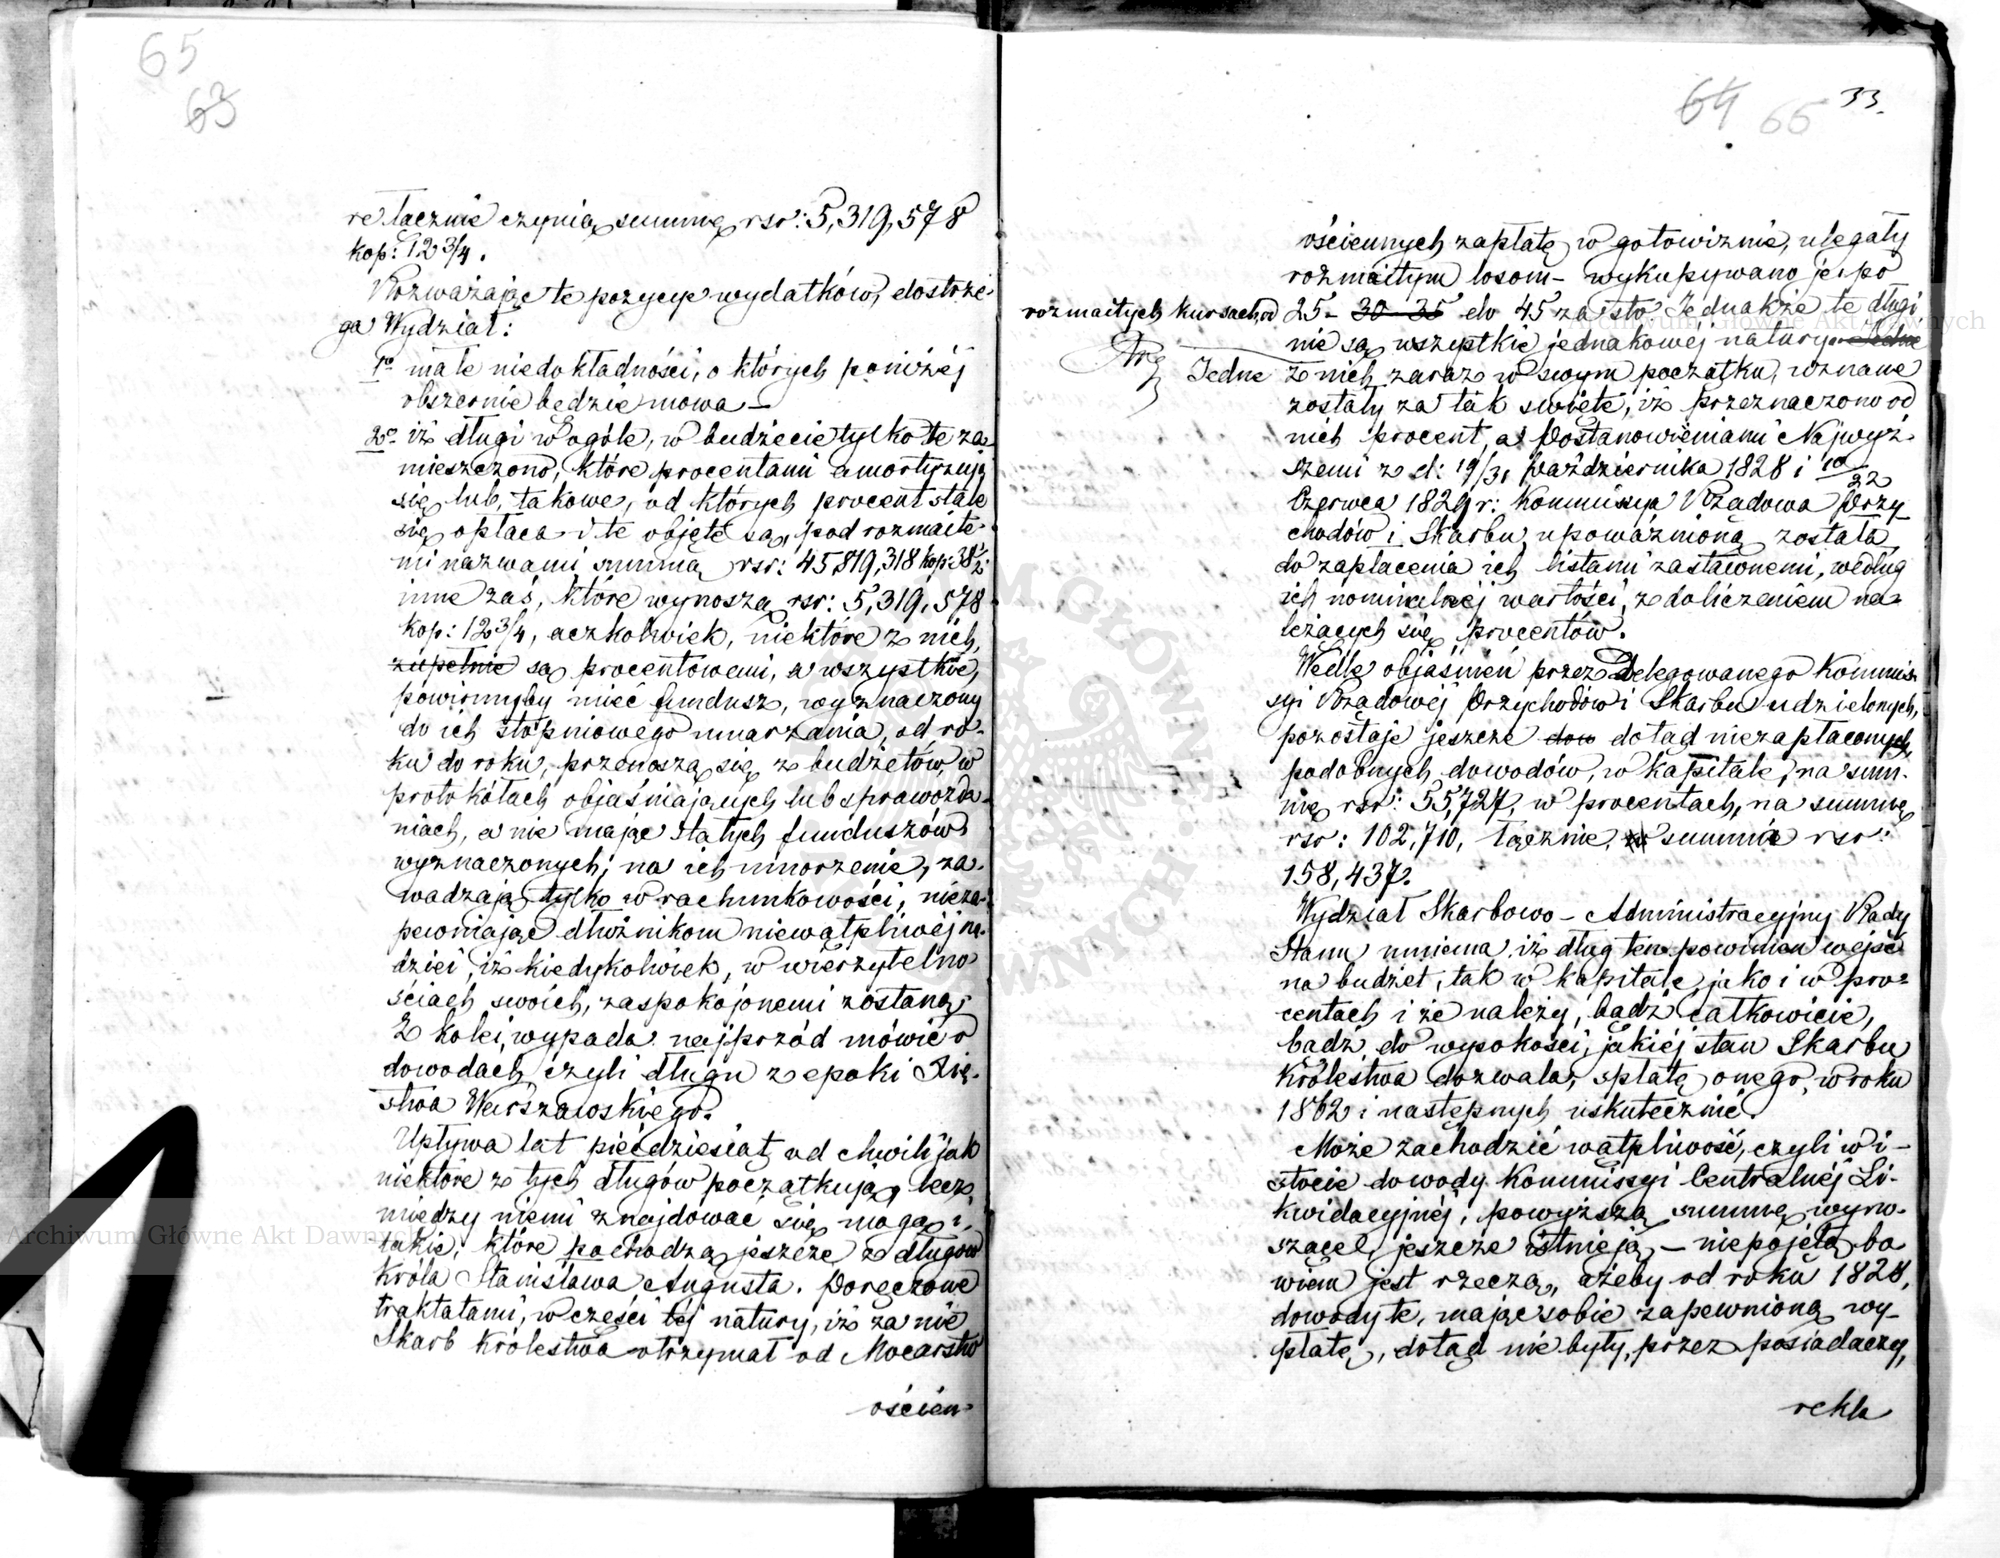 65
63
re łącznie czynią summę rsr: 5,319,578
kop: 12 3/4.
Rozważając te pozycye wydatków, dostrze-
ga Wydział:
1o małe niedokładności, o których poniżéj
obszernie będzie mowa —
2o iż długi w ogóle, w budżecie tylko te za-
mieszczono, które procentami amortyzują
się lub takowe, od których procent stale
się opłaca i te objęte są, pod rozmaite-
mi nazwami summą rsr: 45819,318 kop: 38 1/2
inne zaś, które wynoszą rsr: 5,319,578
kop: 12 3/4, aczkolwiek, niektóre z nich,
zupełnie są procentowemi, a wszystkie,
powinnyby mieć fundusz, wyznaczony
do ich stopniowego umarzania, od ro-
ku do roku, przenoszą się z budżetów, w
protokółach objaśniających lub sprawozda-
niach, a nie mając stałych funduszów
wyznaczonych, na ich umorzenie, za-
wadzają tylko w rachunkowości, nieza-
pewniając dłużnikom niewątpliwéj na-
dziei, iż kiedykolwiek, w wierzytelno
ściach swoich, zaspokojonemi zostaną;
Z kolei, wypada najprzód mówić o
dowodach, czyli długu z epoki Xię-
stwa Warszawskiego.
Upływa lat pięćdziesiąt, od chwili jak
niektóre z tych długów początkują, lecz
między niemi znajdować się mogą i,
takie, które pochodzą jeszcze z długów
Króla Stanisława Augusta. Poręczone
traktatami, w części téj natury, iż za nie
Skarb Królestwa otrzymał od Mocarstw
ościen-
64 65 33.
ościennych zapłatę w gotowiznie, ulegały
rozmaitym losom — wykupywano je po
rozmaitych kursach, od 25 - 30 - 35 do 45 za sto. Jednakże te długi
nie są wszystkie jednakowéj natury. Jedne
Jedne z nich zaraz w swym początku, uznane
zostały za tak święte, iż przeznaczono od
nich procent, a Postanowieniami Najwyż-
szemi z d: 19/31 Października 1828 i 10/22
Czerwca 1829 r: Kommissya Rządowa Przy
chodów i Skarbu, upoważnioną została
do zapłacenia ich listami zastawnemi, według
ich nominalnéj wartości, z doliczeniem na-
leżących się procentów.
Wedle objaśnień przez Delegowanego Kommis
syi Rządowéj Przychodów i Skarbu udzielonych,
pozostaje jeszcze dow dotąd niezapłaconych,
podobnych dowodów, w kapitale, na sum-
mę rsr: 55,727, w procentach, na summę
rsr: 102,710, łącznie, w summie rsr:
158,437.
Wydział Skarbowo-Administracyjny Rady
Stanu mniema, iż dług ten powinien wejść
na budżet, tak w kapitale, jako i w pro-
centach i że należy, bądź całkowicie,
bądź do wysokości, jakiéj stan Skarbu
Królestwa dozwala, spłatę onego, w roku
1862 i następnych uskutecznić.
Może zachodzić wątpliwość, czyli w i-
stocie dowody Kommissyi Centralnéj Li-
kwidacyjnéj, powyższą summę wyrw-
szącel, jeszcze istnieją — niepojętą bo
wiem jest rzeczą, ażeby od roku 1828,
dowody te, mając sobie zapewnioną wy-
płatę, dotąd nie były, przez posiadaczy,
rekla
Archiwum Główne Akt Dawnych
Archiwum Główne Akt Dawnych